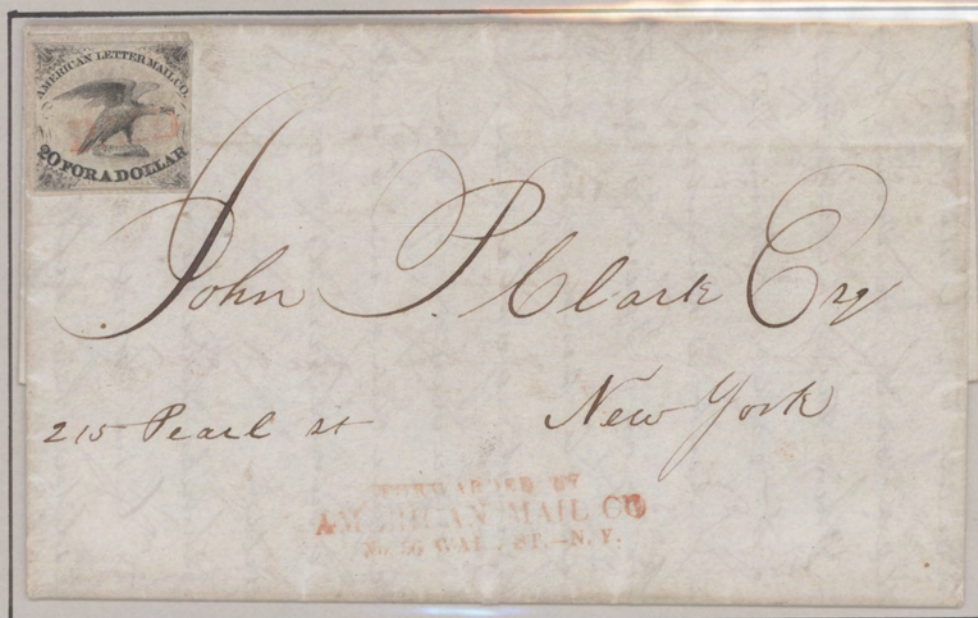 AMERICAN LETTER MAIL CO.
20 FOR A DOLLAR
PAID
John P. Clark Esq
215 Pearl st
New York
FORWARDED BY
AMERICAN MAIL CO
No. 56 WALL ST.—N.Y.